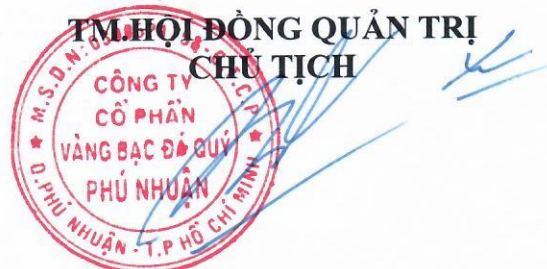 TM.HỘI ĐỒNG QUẢN TRỊ
CHỦ TỊCH
M.S.D.N:
C.P
CÔNG TY
CỔ PHẦN
VÀNG BẠC ĐÁ QUÝ
PHÚ NHUẬN
Q.PHÚ NHUẬN - T.P HỒ CHÍ MINH